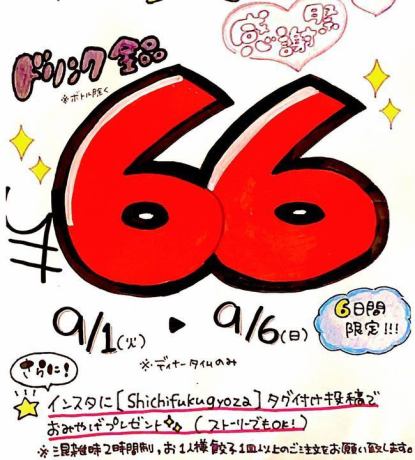 感謝祭
ドリンク全品
※ボトル除く
¥66
9/1(火) ▶ 9/6(日)
6日間
限定!!!
※ディナータイムのみ
さらに!
インスタに[Shichifukugyoza]タグ付け投稿で
おみやげプレゼント (ストーリーでもOK!)
※混雑時2時間制，お1人様餃子1皿以上のご注文をお願い致します